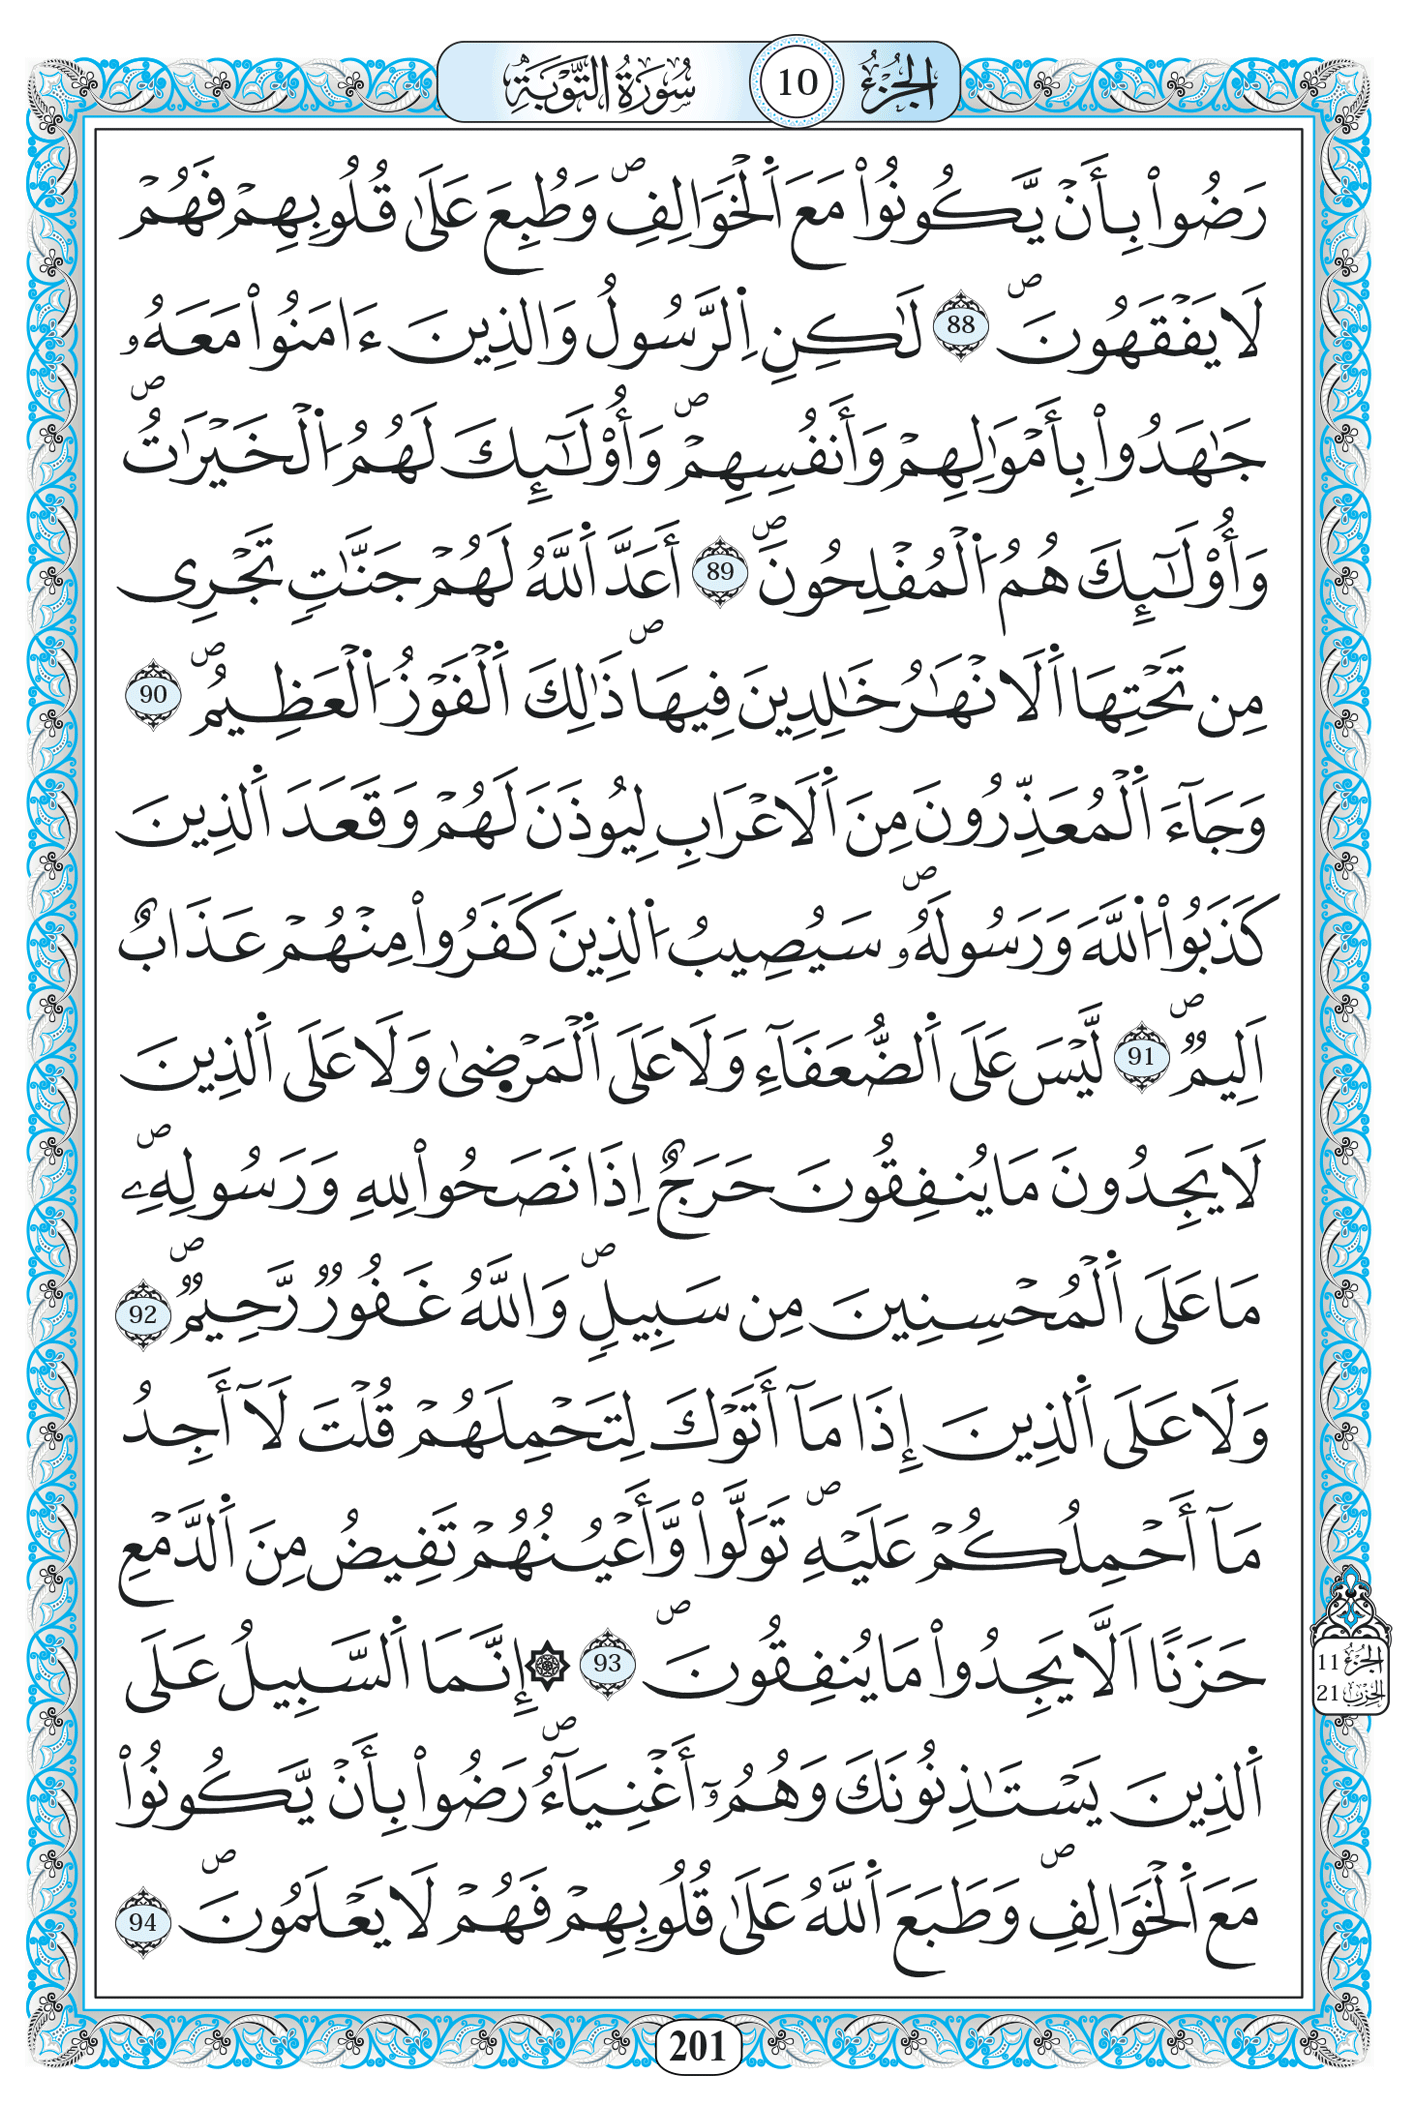 الجزء 10 سورة التوبة
رَضُواْ بِأَنْ يَّكُونُواْ مَعَ اَ۬لْخَوَالِفِۖ وَطُبِعَ عَلَىٰ قُلُوبِهِمْ فَهُمْ
لَا يَفْقَهُونَۖ 88 لَٰكِنِ اِ۬لرَّسُولُ وَالذِينَ ءَامَنُواْ مَعَهُۥ
جَٰهَدُواْ بِأَمْوَٰلِهِمْ وَأَنفُسِهِمْۖ وَأُوْلَٰٓئِكَ لَهُمُ اُ۬لْخَيْرَٰتُۖ
وَأُوْلَٰٓئِكَ هُمُ اُ۬لْمُفْلِحُونَۖ 89 أَعَدَّ اَ۬للَّهُ لَهُمْ جَنَّٰتٖ تَجْرِى
مِن تَحْتِهَا اَ۬لَانْهَٰرُ خَٰلِدِينَ فِيهَاۖ ذَٰلِكَ اَ۬لْفَوْزُ اُ۬لْعَظِيمُۖ 90
وَجَآءَ اَ۬لْمُعَذِّرُونَ مِنَ اَ۬لَاعْرَابِ لِيُوذَنَ لَهُمْ وَقَعَدَ اَ۬لذِينَ
كَذَبُواْ اُ۬للَّهَ وَرَسُولَهُۥۖ سَيُصِيبُ اُ۬لذِينَ كَفَرُواْ مِنْهُمْ عَذَابٌ
اَلِيمٞۖ 91 لَّيْسَ عَلَى اَ۬لضُّعَفَآءِ وَلَا عَلَى اَ۬لْمَرْضۭىٰ وَلَا عَلَى اَ۬لذِينَ
لَا يَجِدُونَ مَا يُنفِقُونَ حَرَجٌ اِذَا نَصَحُواْ لِلهِ وَرَسُولِهِۦۖ
مَا عَلَى اَ۬لْمُحْسِنِينَ مِن سَبِيلٖۖ وَاللَّهُ غَفُورٞ رَّحِيمٞۖ 92
وَلَا عَلَى اَ۬لذِينَ إِذَا مَآ أَتَوْكَ لِتَحْمِلَهُمْ قُلْتَ لَآ أَجِدُ
مَآ أَحْمِلُكُمْ عَلَيْهِۖ تَوَلَّواْ وَّأَعْيُنُهُمْ تَفِيضُ مِنَ اَ۬لدَّمْعِ
حَزَنًا اَلَّا يَجِدُواْ مَا يُنفِقُونَۖ 93 ۞إِنَّمَا اَ۬لسَّبِيلُ عَلَى
اَ۬لذِينَ يَسْتَٰذِنُونَكَ وَهُمُۥٓ أَغْنِيَآءُۖ رَضُواْ بِأَنْ يَّكُونُواْ
مَعَ اَ۬لْخَوَالِفِۖ وَطَبَعَ اَ۬للَّهُ عَلَىٰ قُلُوبِهِمْ فَهُمْ لَا يَعْلَمُونَۖ 94
الجزء 11
الحزب 21
201